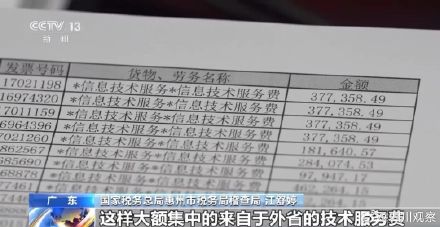 CCTV 13
新闻
发票号码 货物、劳务名称 金额
17021198 *信息技术服务*信息技术服务费 377,358.49
16974320 *信息技术服务*信息技术服务费 377,358.49
17011159 *信息技术服务*信息技术服务费 377,358.49
6964396 *信息技术服务*信息技术服务费 377,358.49
862567 *信息技术服务*信息技术服务费 181,640.57
685690 *信息技术服务*信息技术服务费 284,074.53
*信息技术服务*信息技术服务费 97,947.17
广东 国家税务总局惠州市税务局稽查局 江舒婷
这样大额集中的来自于外省的技术服务费